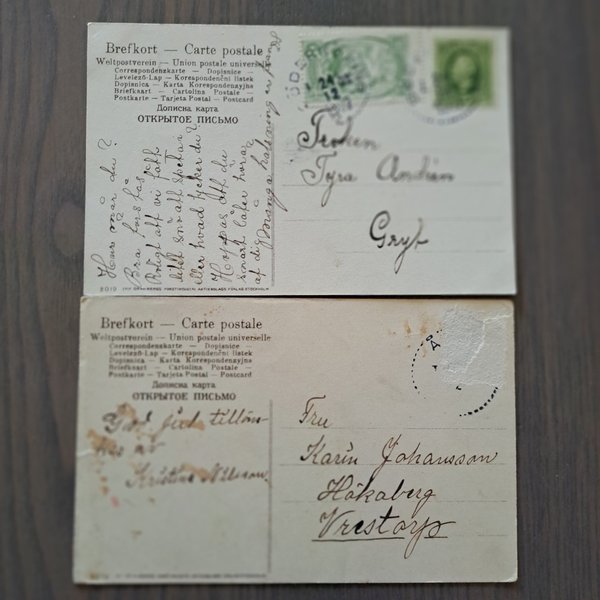 Brefkort — Carte postale
Weltpostverein — Union postale universelle
Correspondenzkarte — Dopisnice
Levelező-Lap — Korespondenční listek
Dopisnica — Karta Korespondenzyjna
Briefkaart — Cartolina Postale
Postkarte — Tarjeta Postal — Postcard
Дописна карта
ОТКРЫТОЕ ПИСЬМО
Hur mår du?
Bra hos oss
Roligt att vi fått
litet snö att
eller hvad tycker du?
Hoppas att du
snart låter höra
af dig
Många hälsningar
24
12
Tyra Andrén
Gryt
Brefkort — Carte postale
Weltpostverein — Union postale universelle
Correspondenzkarte — Dopisnice
Levelező-Lap — Korespondenční listek
Dopisnica — Karta Korespondenzyjna
Briefkaart — Cartolina Postale
Postkarte — Tarjeta Postal — Postcard
Дописна карта
ОТКРЫТОЕ ПИСЬМО
God Jul tillön
kas av
Kristina Nilsson
Fru
Karin Johansson
Hökaberg
Vrestorp